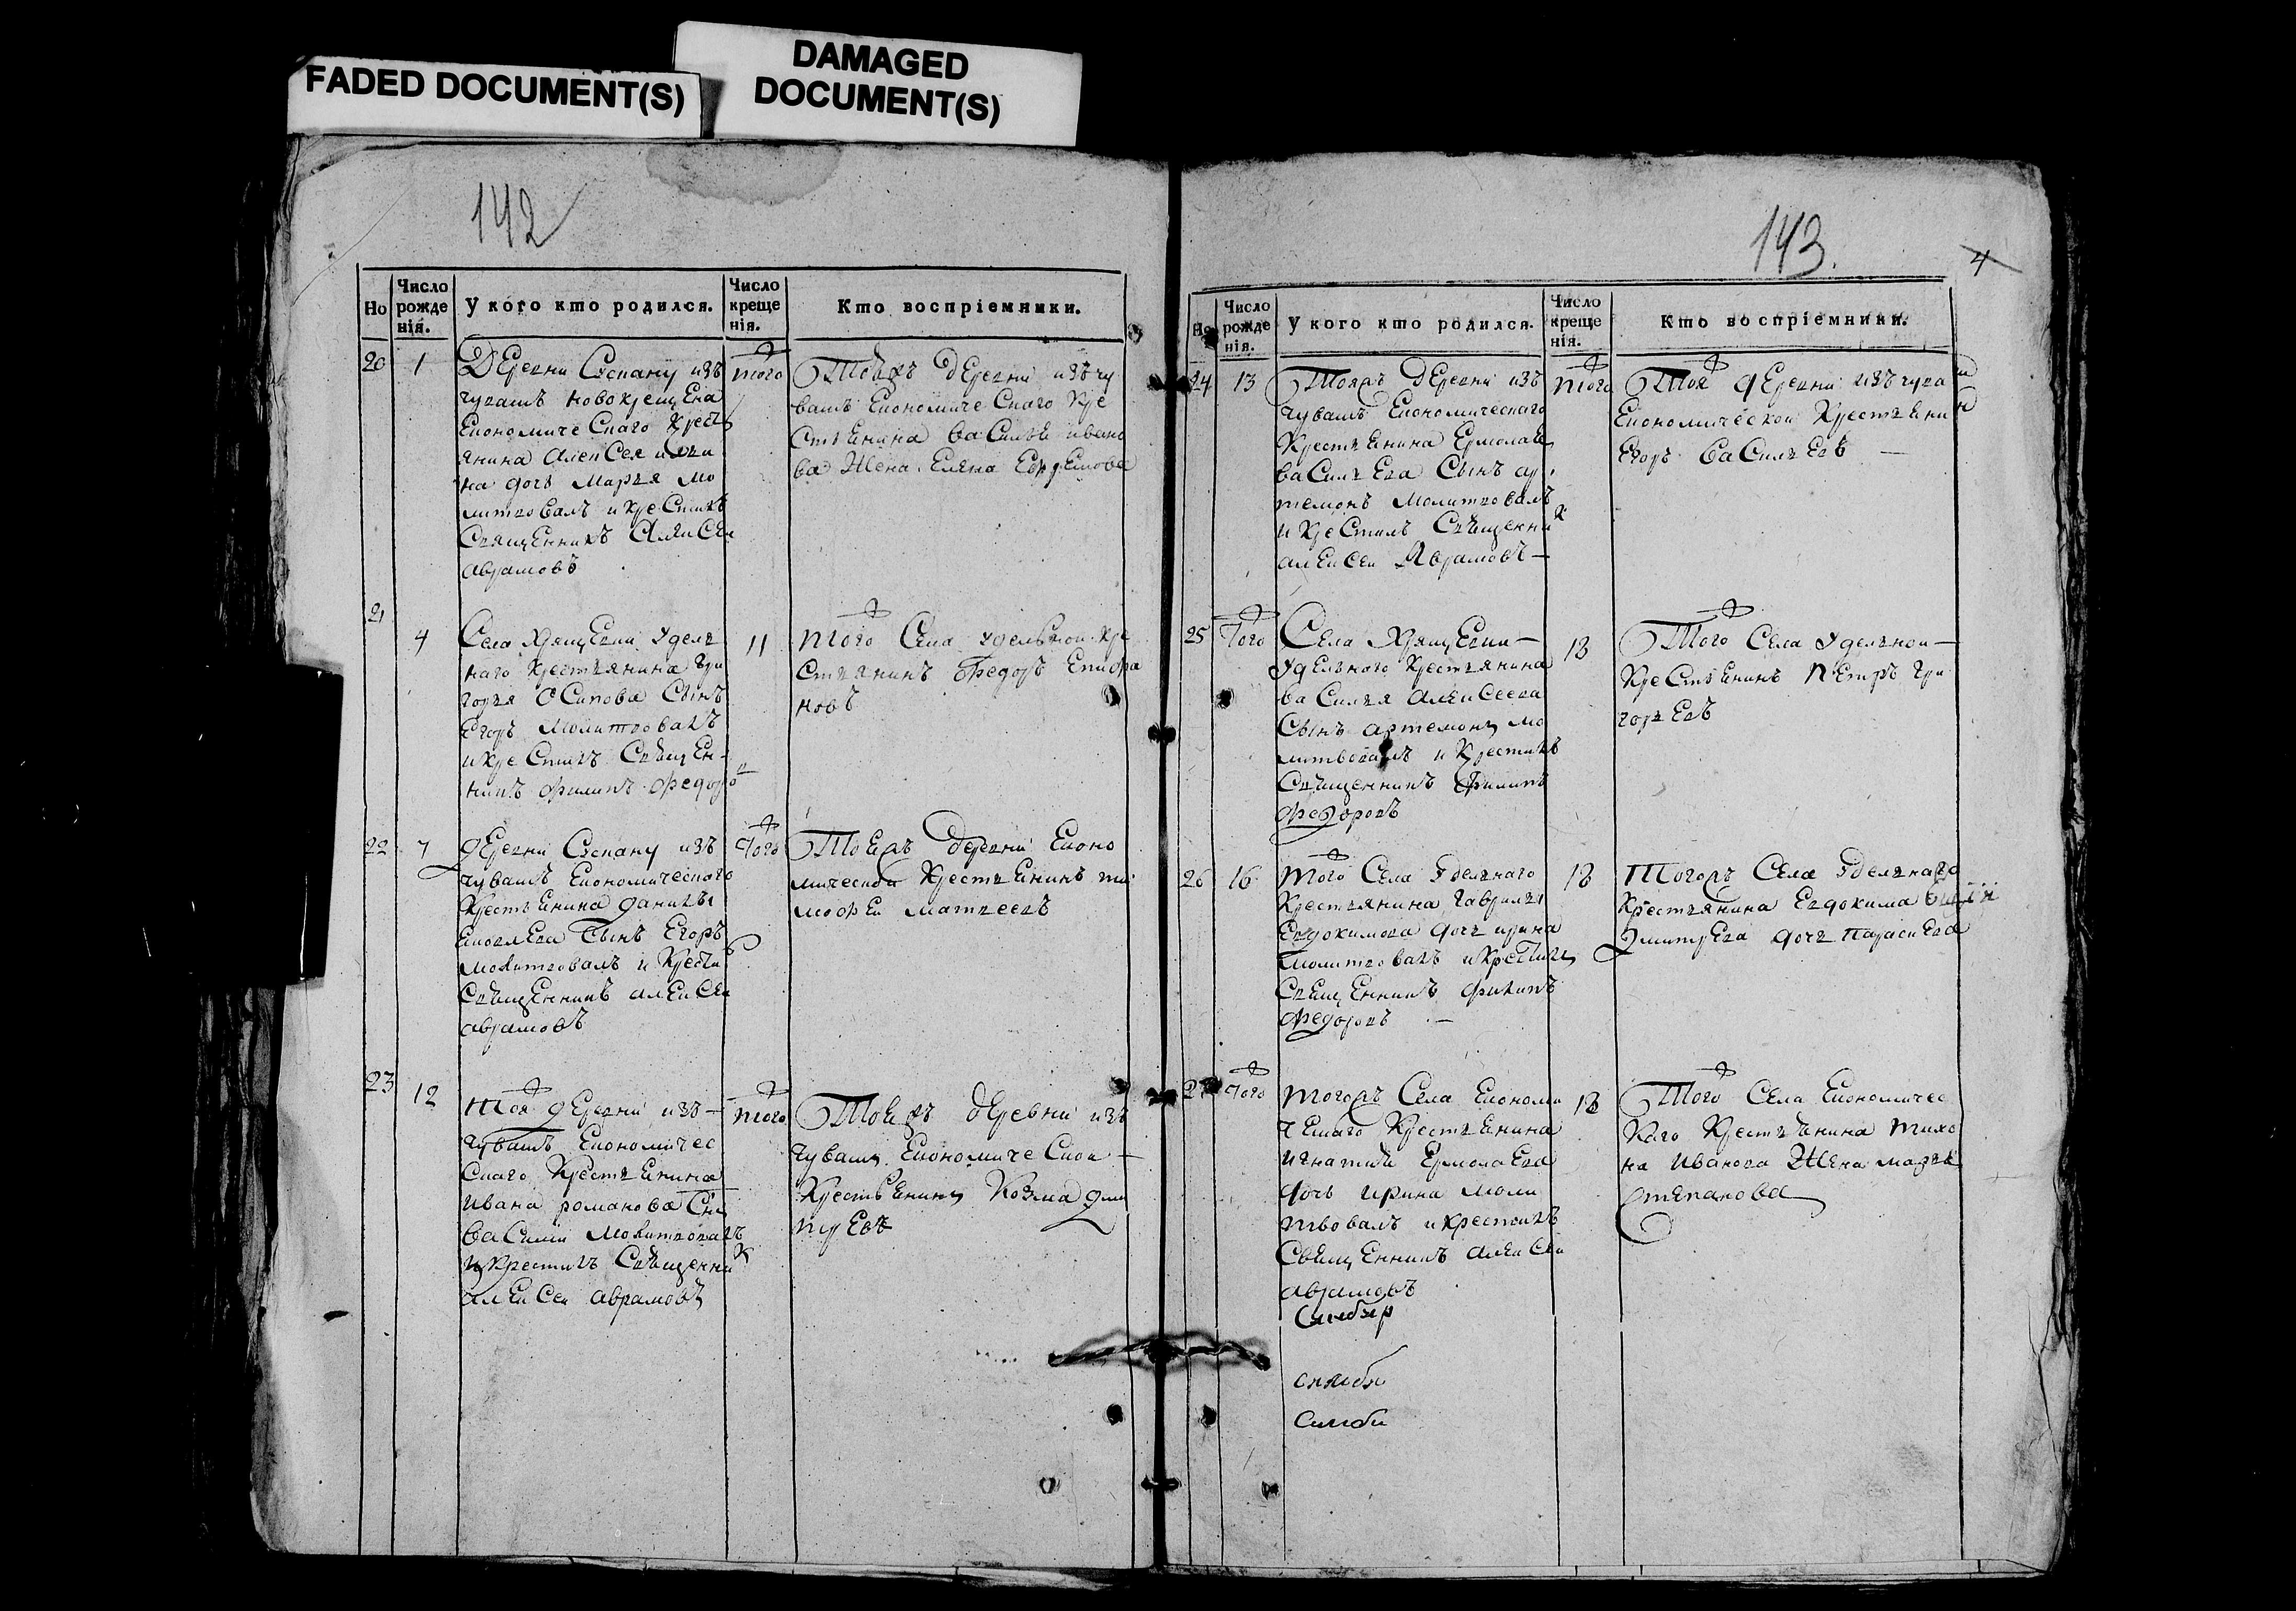 FADED DOCUMENT(S)
DAMAGED
DOCUMENT(S)
142
Но
Число рожденія.
У кого кто родился.
Число крещенія.
Кто воспріемники.
20
1
Деревни Сюспану изъ
чувашъ новокрещена
Економического Крест
янина Алексея
на дочь Марья мо
литвовалъ и крестилъ
Священникъ Алексеи
Аврамовъ
того
Тоежъ деревни изъ чу
вашъ Економического кре
стьенина Василья ивано
ва Жена Елена
21
4
Села Хрящевки удель
наго крестьянина Гри
горья Осипова Сынъ
Егоръ Молитвовалъ
и крестилъ Священ
никъ Филипъ Федоро
11
того Села удельной кре
стьянинъ Федоръ Епифа
новъ
22
7
деревни Сюспану изъ
чувашъ Економического
Крестьенина данилы
Сынъ Егоръ
молитвовалъ и крести
Священникъ алексеи
аврамовъ
Того
Тоежъ деревни Еконо
мической Крестьенинъ ти
мофеи матвеевъ
23
12
Тоя деревни изъ
чувашъ Економичес
кого Крестьенина
ивана романова Сы
василеи молитвовалъ
и крестилъ Священник
алексеи аврамовъ
того
Тоежъ деревни изъ
чувашъ Економической
Крестьенинъ Козма дми
тревъ
143.
4
Но
Число рожденія.
У кого кто родился.
Число крещенія.
Кто воспріемники.
24
13
Тояжъ деревни изъ
чувашъ Економического
Крестьенина Ермолая
васильева Сынъ ар
темонъ молитвовалъ
и крестилъ Священник
алексеи Аврамовъ
того
Тоя деревни изъ чуваш
Економической крестьенин
Егоръ Васильевъ
25
Того
Села Хрящевки
удельного крестьянина
василья алексеева
Сынъ артемонъ мо
литвовалъ и крестилъ
Священникъ Филипъ
Федоровъ
18
Того Села удельной
крестьенинъ Петръ Гри
горьевъ
26
16
того Села Удельнаго
Крестьянина Гаврилы
Евдокимова дочь ирина
молитвовалъ и крестилъ
Священникъ филипъ
Федоровъ
18
Тогожъ Села Удельнаго
крестьянина Евдокима
дмитрева дочь параскева
27
Того
тогожъ Села Економи
ческаго Крестьенина
игнатия Ермолаева
дочь ирина моли
твовалъ и крестилъ
Священникъ алексеи
аврамовъ
18
Того Села Економичес
каго Крестьенина тихо
на иванова Жена марья
степанова
Симбир
симби
симби